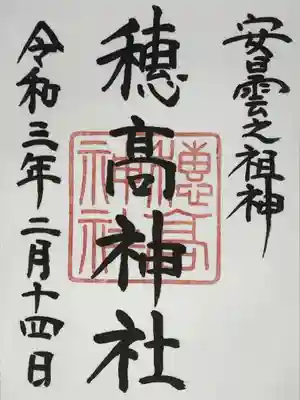 安曇之祖神
穂高神社
穂高神社
令和三年二月十四日